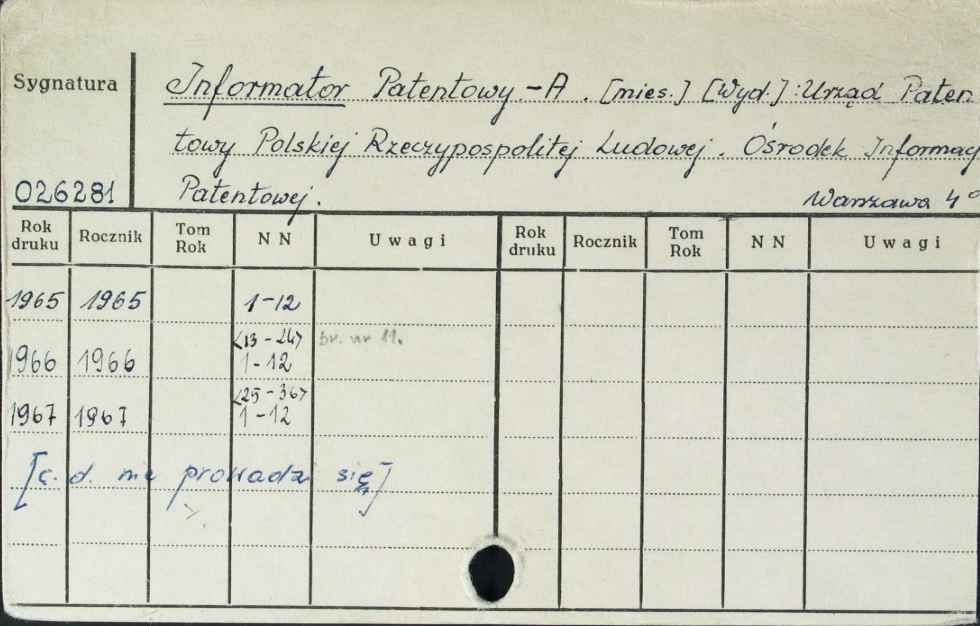 Sygnatura
Informator Patentowy.-A. [mies.] [Wyd.]: Urząd Paten
towy Polskiej Rzeczypospolitej Ludowej. Ośrodek Informacj
026281 Patentowej. Warszawa 4°
Rok druku Rocznik Tom Rok NN Uwagi Rok druku Rocznik Tom Rok NN Uwagi
1965 1965 1-12
<13-24> br. nr 11.
1966 1966 1-12
<25-36>
1967 1967 1-12
[c. d. nie prowadzi się]